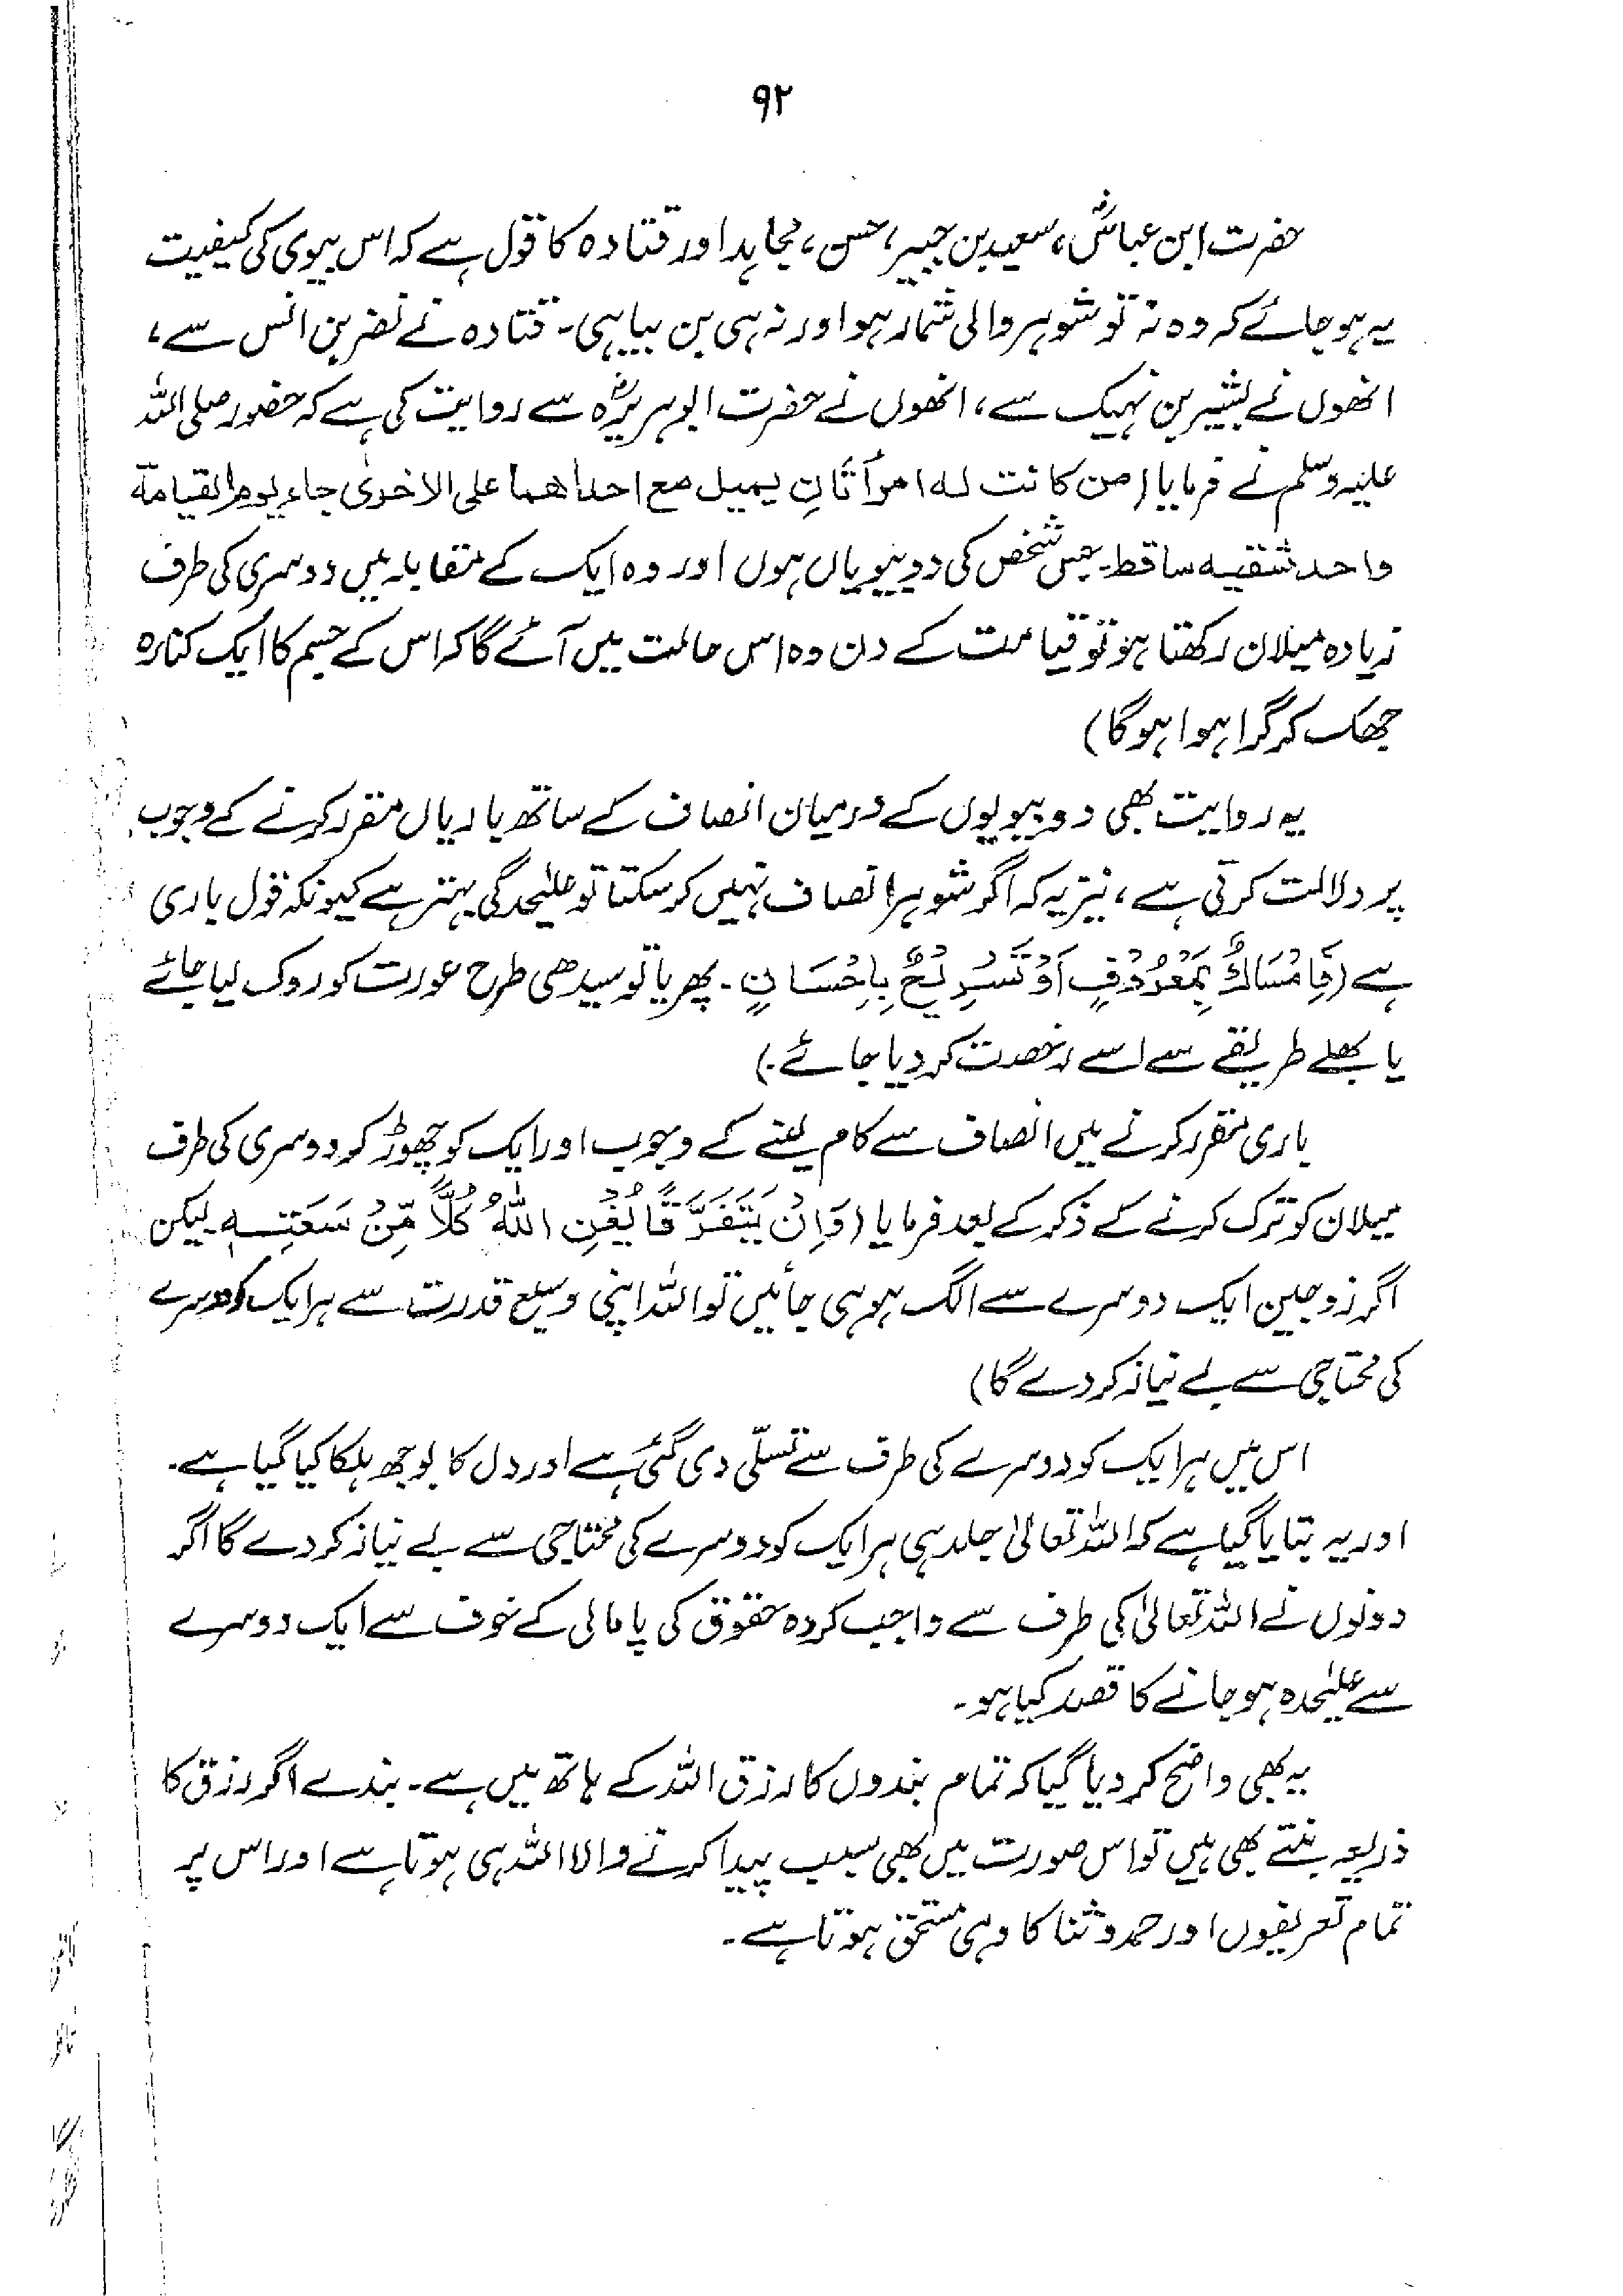 ۹۲
حضرت ابن عباسؓ، سعید بن جبیر، حسن، مجاہد اور قتادہ کا قول ہے کہ اس بیوی کی کیفیت
یہ ہو جائے کہ وہ نہ تو شوہر والی شمار ہو اور نہ ہی بن بیاہی۔ قتادہ نے نضر بن انس سے،
انھوں نے بشیر بن نہیک سے، انھوں نے حضرت ابو ہریرہؓ سے روایت کی ہے کہ حضور صلی اللہ
علیہ وسلم نے فرمایا (من کانت لہ امرأتانِ یمیل مع احداھما علی الاخریٰ جاء یوم القیامۃ
واحد شقیہ ساقط۔ جس شخص کی دو بیویاں ہوں اور وہ ایک کے مقابلہ میں دوسری کی طرف
زیادہ میلان رکھتا ہو تو قیامت کے دن وہ اس حالت میں آئے گا کہ اس کے جسم کا ایک کنارہ
جھک کر گرا ہوا ہوگا)
یہ روایت بھی دو بیویوں کے درمیان انصاف کے ساتھ باریاں مقرر کرنے کے وجوب
پر دلالت کرتی ہے، نیز یہ کہ اگر شوہر انصاف نہیں کر سکتا تو علیٰحدگی بہتر ہے کیونکہ قول باری
ہے (فَاِمْسَاكٌ بِمَعْرُوْفٍ اَوْ تَسْرِيْحٌ بِاِحْسَانٍ۔ پھر یا تو سیدھی طرح عورت کو روک لیا جائے
یا بھلے طریقے سے اسے رخصت کر دیا جائے۔)
باری مقرر کرنے میں انصاف سے کام لینے کے وجوب اور ایک کو چھوڑ کر دوسری کی طرف
میلان کو ترک کرنے کے ذکر کے بعد فرمایا (وَاِنْ يَّتَفَرَّقَا يُغْنِ اللّٰهُ كُلًّا مِّنْ سَعَتِهٖ لیکن
اگر زوجین ایک دوسرے سے الگ ہو ہی جائیں تو اللہ اپنی وسیع قدرت سے ہر ایک کو دوسرے
کی محتاجی سے بے نیاز کر دے گا)
اس میں ہر ایک کو دوسرے کی طرف سے تسلّی دی گئی ہے اور دل کا بوجھ ہلکا کیا گیا ہے۔
اور یہ بتایا گیا ہے کہ اللہ تعالیٰ جلد ہی ہر ایک کو دوسرے کی محتاجی سے بے نیاز کر دے گا اگر
دونوں نے اللہ تعالیٰ کی طرف سے واجب کردہ حقوق کی پامالی کے خوف سے ایک دوسرے
سے علیٰحدہ ہو جانے کا قصد کیا ہو۔
یہ بھی واضح کر دیا گیا کہ تمام بندوں کا رزق اللہ کے ہاتھ میں ہے۔ بندے اگر رزق کا
ذریعہ بنتے بھی ہیں تو اس صورت میں بھی سبب پیدا کرنے والا اللہ ہی ہوتا ہے اور اس پر
تمام تعریفوں اور حمد و ثنا کا وہی مستحق ہوتا ہے۔